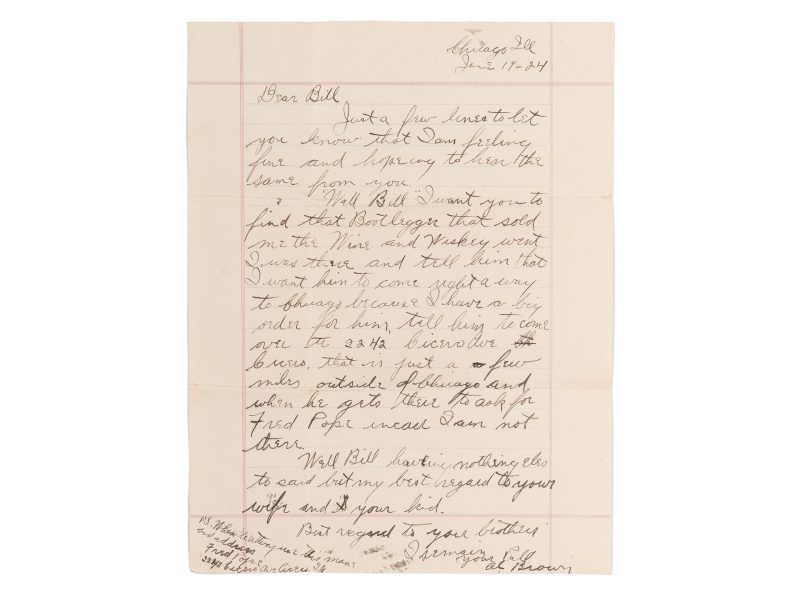 Chicago Ill
June 17-24
Dear Bill
Just a few lines to let
you know that I am feeling
fine and hopeing to hear the
same from you
"Well Bill" I want you to
find that Bootlegger that sold
me the Wine and Wiskey went
I was there and tell him that
I want him to come right a way
to Chicago because I have a big
order for him, tell him to come
over to 2242 Cicero Ave
Cicero, that is just a few
miles outside of Chicago and
when he gets there to ask for
Fred Pope incase I am not
there.
Well Bill haveing nothing eles
to said but my best regard to your
wife and your kid.
Best regard to your brothers
I remain
your Pall
Al Brown
P.S. When writing use this name
and address
Fred Pope
2242 Cicero Ave Cicero, Ill